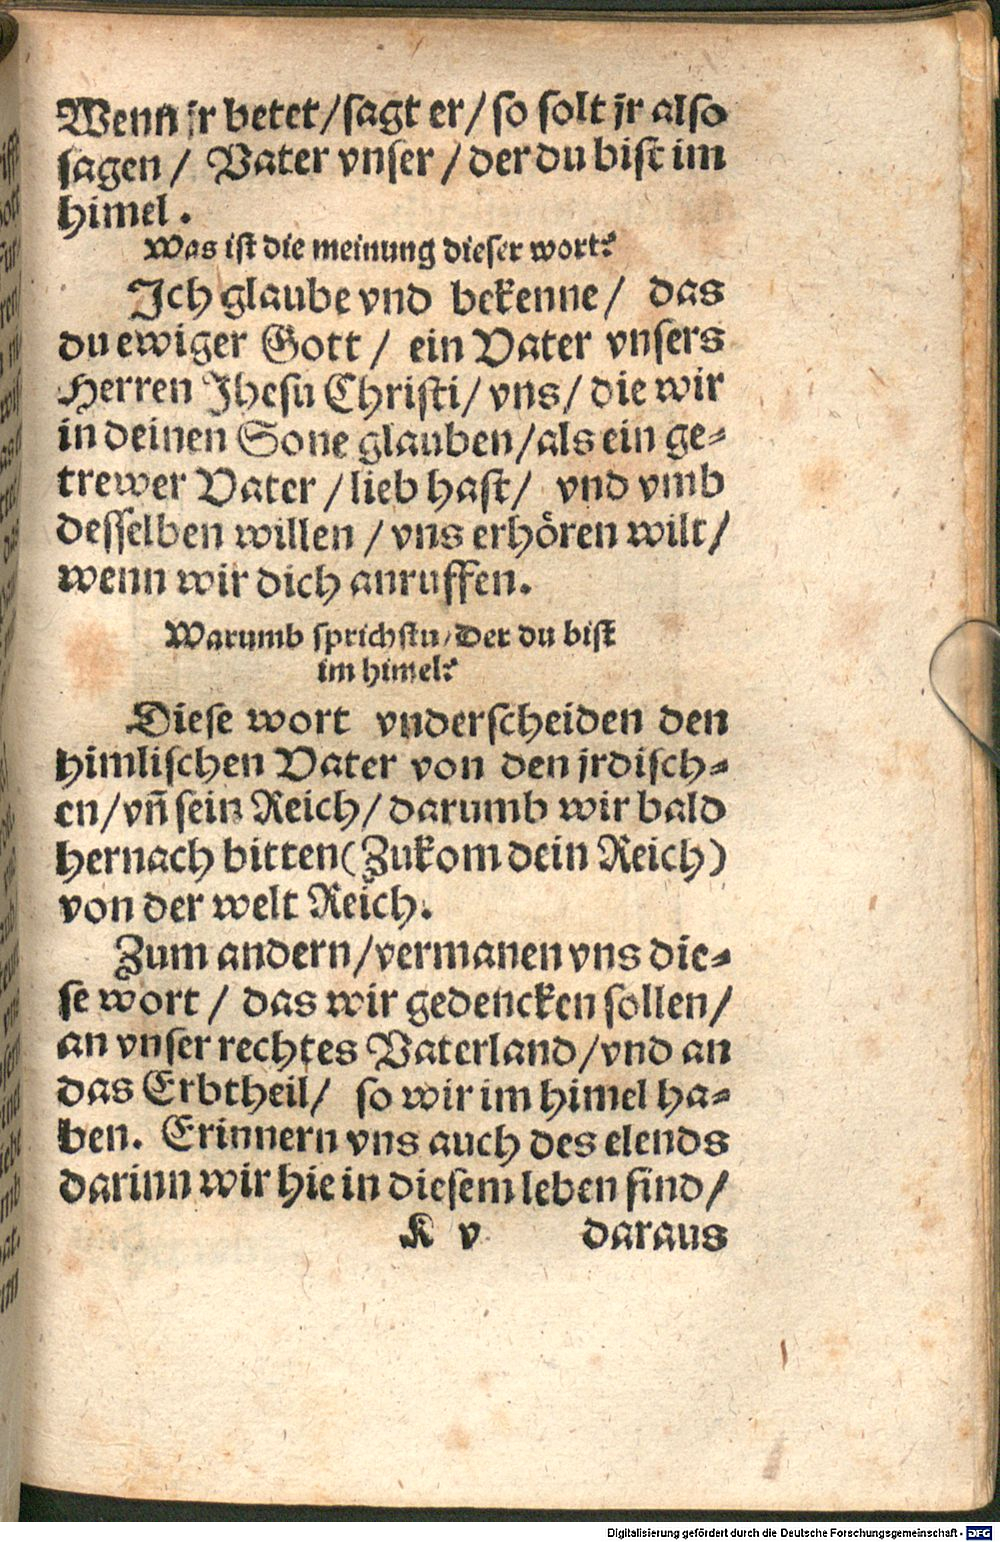 Wenn jr betet/sagt er/so solt jr also
sagen/ Vater vnser/der du bist im
himel.
Was ist die meinung dieser wort?
Ich glaube vnd bekenne/ das
du ewiger Gott/ ein Vater vnsers
Herren Jhesu Christi/vns/die wir
in deinen Sone glauben/als ein ge-
trewer Vater/lieb hast/ vnd vmb
desselben willen/vns erhören wilt/
wenn wir dich anruffen.
Warumb sprichstu/Der du bist
im himel?
Diese wort vnderscheiden den
himlischen Vater von den jrdisch-
en/vñ sein Reich/darumb wir bald
hernach bitten(Zukom dein Reich)
von der welt Reich.
Zum andern/vermanen vns die-
se wort/ das wir gedencken sollen/
an vnser rechtes Vaterland/vnd an
das Erbtheil/ so wir im himel ha-
ben. Erinnern vns auch des elends
darinn wir hie in diesem leben sind/
K v daraus
Digitalisierung gefördert durch die Deutsche Forschungsgemeinschaft - DFG